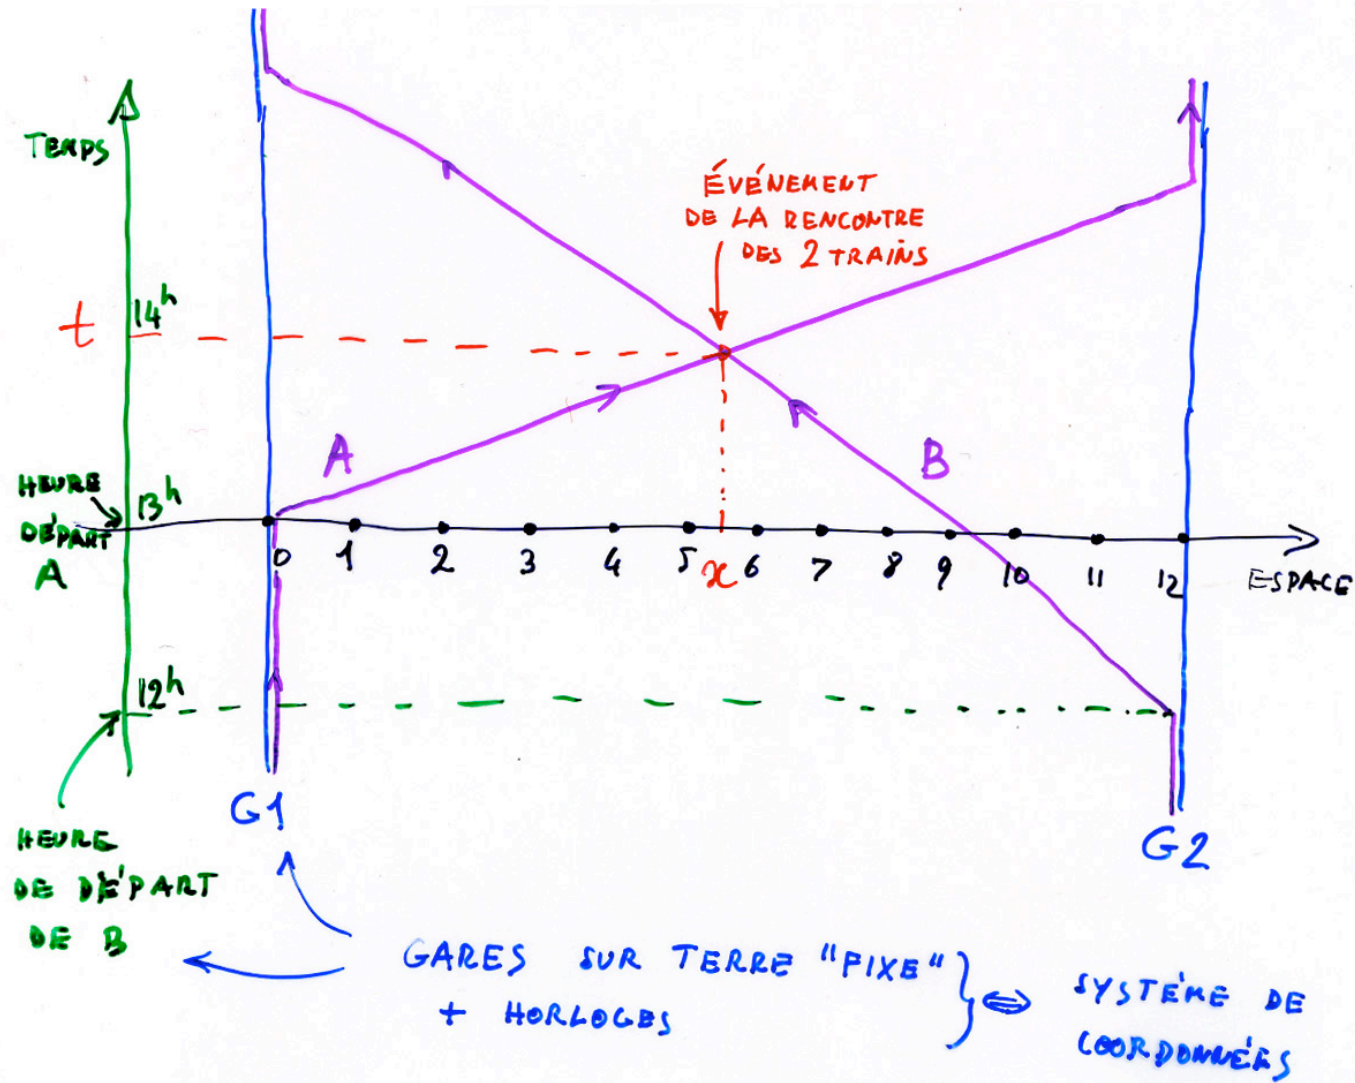 TEMPS
ÉVÉNEMENT
DE LA RENCONTRE
DES 2 TRAINS
t
14h
A
B
HEURE
DÉPART
A
13h
0 1 2 3 4 5 x 6 7 8 9 10 11 12
ESPACE
12h
G1
G2
HEURE
DE DÉPART
DE B
GARES SUR TERRE "FIXE"
+ HORLOGES
SYSTÉME DE
COORDONNÉES